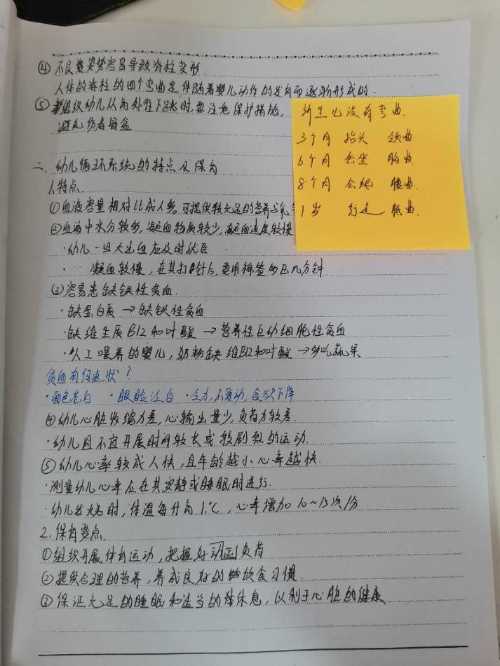 ④ 不良坐姿势容易导致脊柱变形
人体的脊柱的四个弯曲是伴随着婴儿动作的发育而逐渐形成的.
⑤ 组织幼儿从高处往下跳时,要注意保护措施,
避免伤着骨盆
新生儿没有弯曲.
3个月 抬头 颈曲
6个月 会坐 胸曲
8个月 会爬 腰曲
1岁 行走 骶曲.
二、幼儿循环系统的特点及保育
1.特点
①血液容量相对比成人多,可提供较充足的营养
②血液中水分较多,凝血物质较少,凝血速度较慢
·幼儿一旦大出血应及时就医
凝血较慢,在其打针后,要用棉签多压几分钟
③容易患缺铁性贫血.
·缺蛋白质 → 缺铁性贫血
·缺维生素B12和叶酸 → 营养性巨幼细胞性贫血
·人工喂养的婴儿,奶粉缺维B12和叶酸 → 多吃蔬果
贫血有何症状?
·面色苍白 ·眼睑泛白 ·乏力,不爱动,食欲下降
④幼儿心脏收缩力差,心输出量少,负荷力较差.
·幼儿且不宜开展时间较长或较剧烈的运动.
⑤幼儿心率较成人快,且年龄越小心率越快.
·测量幼儿心率应在其安静或睡眠时进行.
·幼儿发热时,体温每升高1℃,心率增加10~15次/分
2.保育要点.
①组织开展体育运动,把握好负荷
②提供合理的营养,养成良好的饮食习惯.
③保证充足的睡眠和适当的休息,以利于心脏的健康